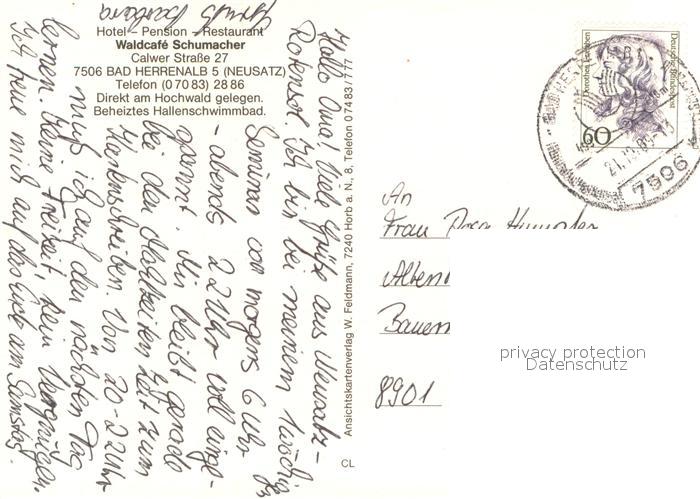 Hotel – Pension – Restaurant
Waldcafé Schumacher
Calwer Straße 27
7506 BAD HERRENALB 5 (NEUSATZ)
Telefon (0 70 83) 28 86
Direkt am Hochwald gelegen.
Beheiztes Hallenschwimmbad.
Hallo Oma! Viele Grüße aus Neusatz-
Rotensol. Ich bin bei meinem
Seminar von morgens 6 Uhr
- abends 22 Uhr voll einge-
spannt. Mir bleibt gerade
bei den Mahlzeiten Zeit zum
Kartenschreiben. Von 20-22 Uhr
muß ich auf den nächsten Tag
lernen. Keine Freizeit, kein Vergnügen.
Ich freue mich auf das Ende am Samstag.
Gruß Barbara
Ansichtskartenverlag W. Feldmann, 7240 Horb a. N. 8, Telefon 0 74 83 / 777
CL
Deutsche Bundespost
60
7506
An
Frau Rosa
Bauern
8901
privacy protection
Datenschutz